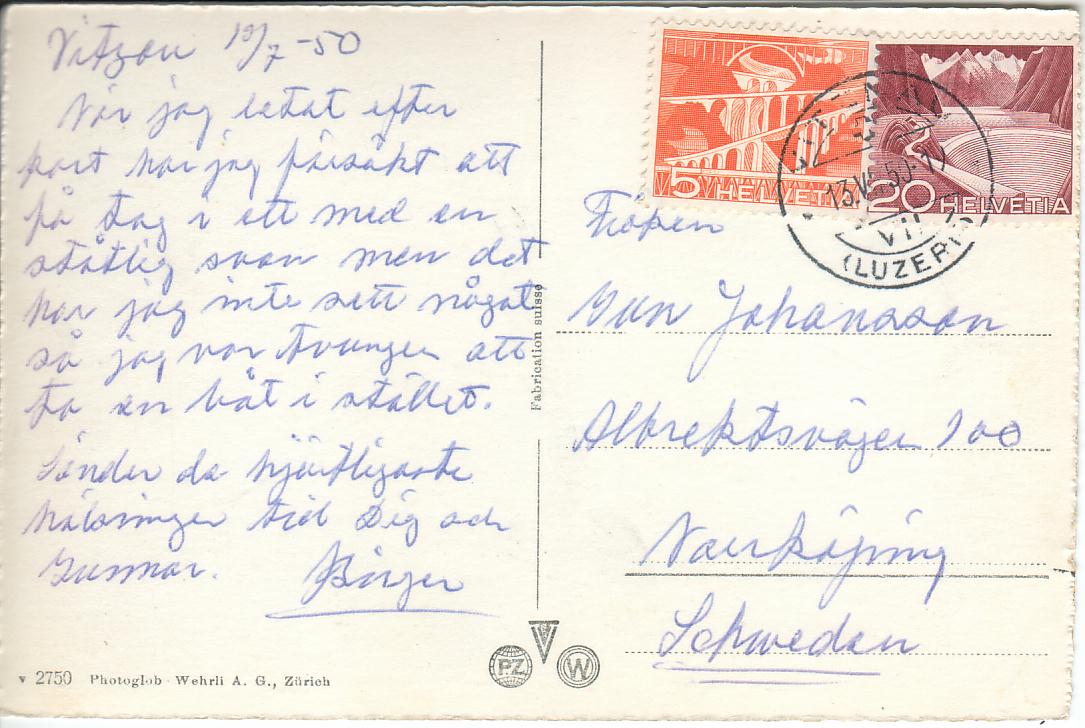 Vitznau 12/7-50
När jag letat efter
kort har jag försökt att
få tag i ett med en
ståtlig svan men det
har jag inte sett något
så jag var tvungen att
ta en båt i stället.
Sänder de hjärtligaste
hälsningar till Dig och
Gunnar. Birger
Fabrication suisse
v 2750 Photoglob-Wehrli A. G., Zürich
PZ
W
5 HELVETIA
20 HELVETIA
13.VII.50
(LUZERN)
Fröken
Gun Johansson
Albrektsvägen 100
Norrköping
Schweden